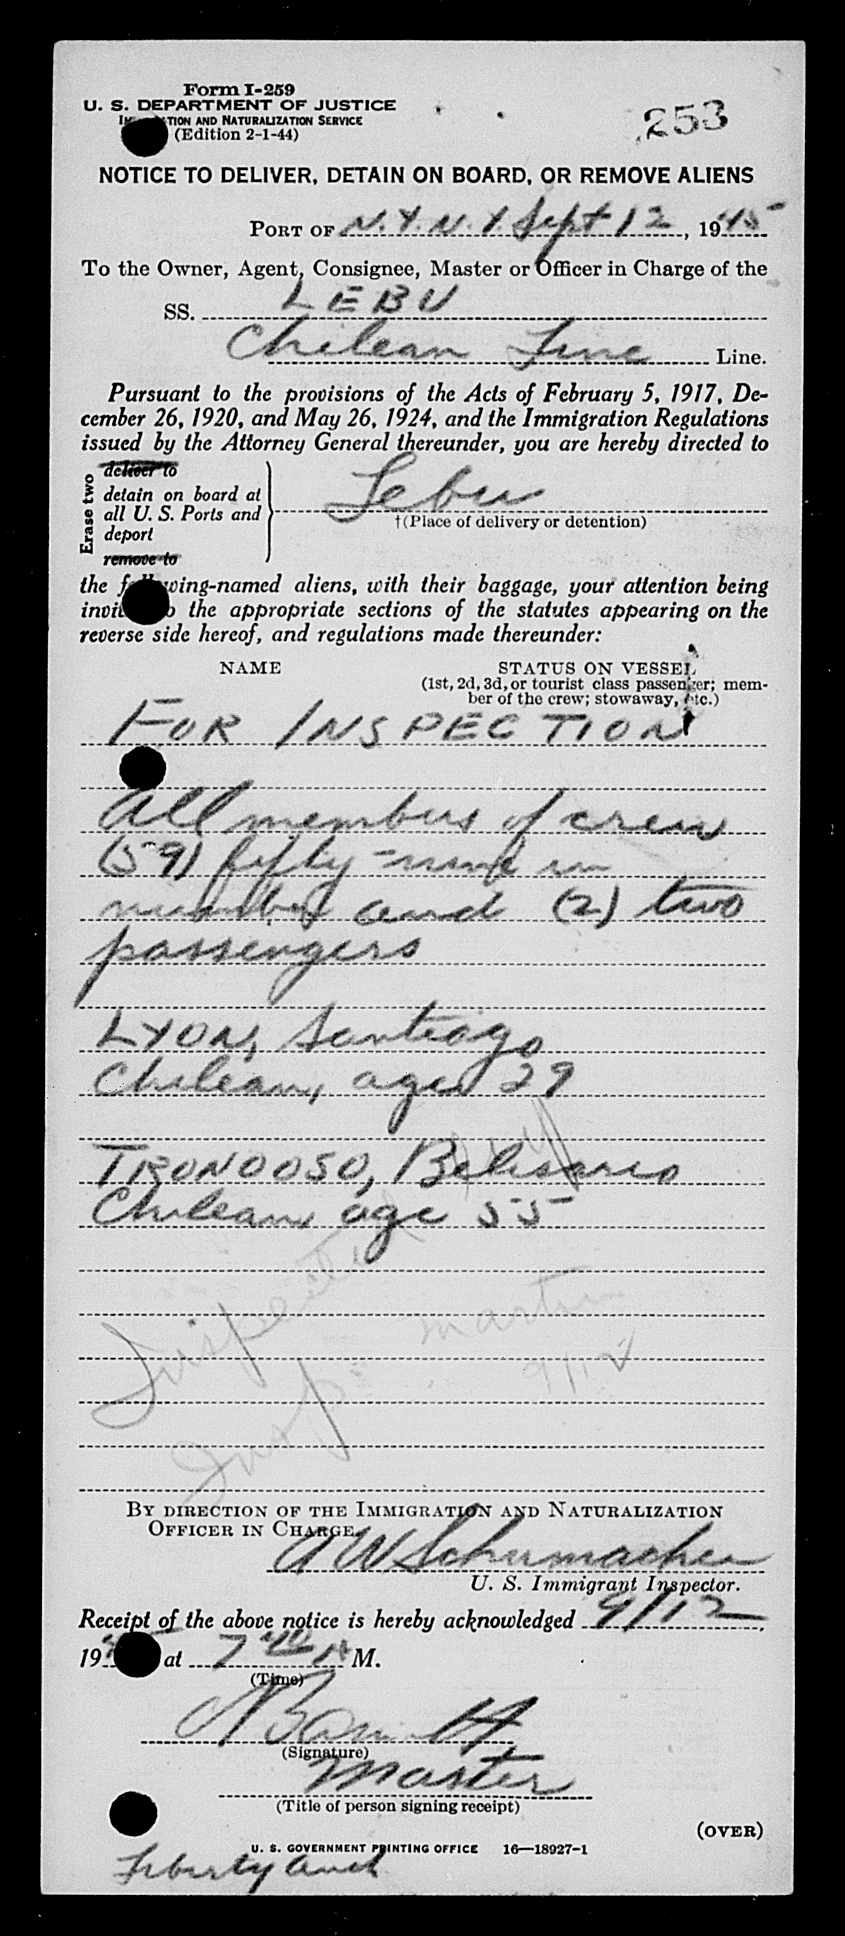 Form I-259
U. S. DEPARTMENT OF JUSTICE
TION AND NATURALIZATION SERVICE
(Edition 2-1-44)
253
NOTICE TO DELIVER, DETAIN ON BOARD, OR REMOVE ALIENS
PORT OF N.Y.N.Y. Sept 12, 1945
To the Owner, Agent, Consignee, Master or Officer in Charge of the
SS. LEBU
Chilean Line Line.
Pursuant to the provisions of the Acts of February 5, 1917, De-
cember 26, 1920, and May 26, 1924, and the Immigration Regulations
issued by the Attorney General thereunder, you are hereby directed to
Erase two
deliver to
detain on board at
all U. S. Ports and
deport
remove to
Lebu
†(Place of delivery or detention)
the following-named aliens, with their baggage, your attention being
invited to the appropriate sections of the statutes appearing on the
reverse side hereof, and regulations made thereunder:
NAME STATUS ON VESSEL
(1st, 2d, 3d, or tourist class passenger; mem-
ber of the crew; stowaway, etc.)
FOR INSPECTION
All members of crew
(59) fifty-nine in
number and (2) two
passengers
LYON, Santiago
Chilean, age 29
TRONDOSO, Belisario
Chilean age 55
Inspected
Insp. Martin
9/12
BY DIRECTION OF THE IMMIGRATION AND NATURALIZATION
OFFICER IN CHARGE.
A W Schumacher
U. S. Immigrant Inspector.
Receipt of the above notice is hereby acknowledged 9/12,
19 at 7 40 A M.
(Time)
(Signature)
Master
(Title of person signing receipt)
(OVER)
U. S. GOVERNMENT PRINTING OFFICE 16—18927-1
Liberty